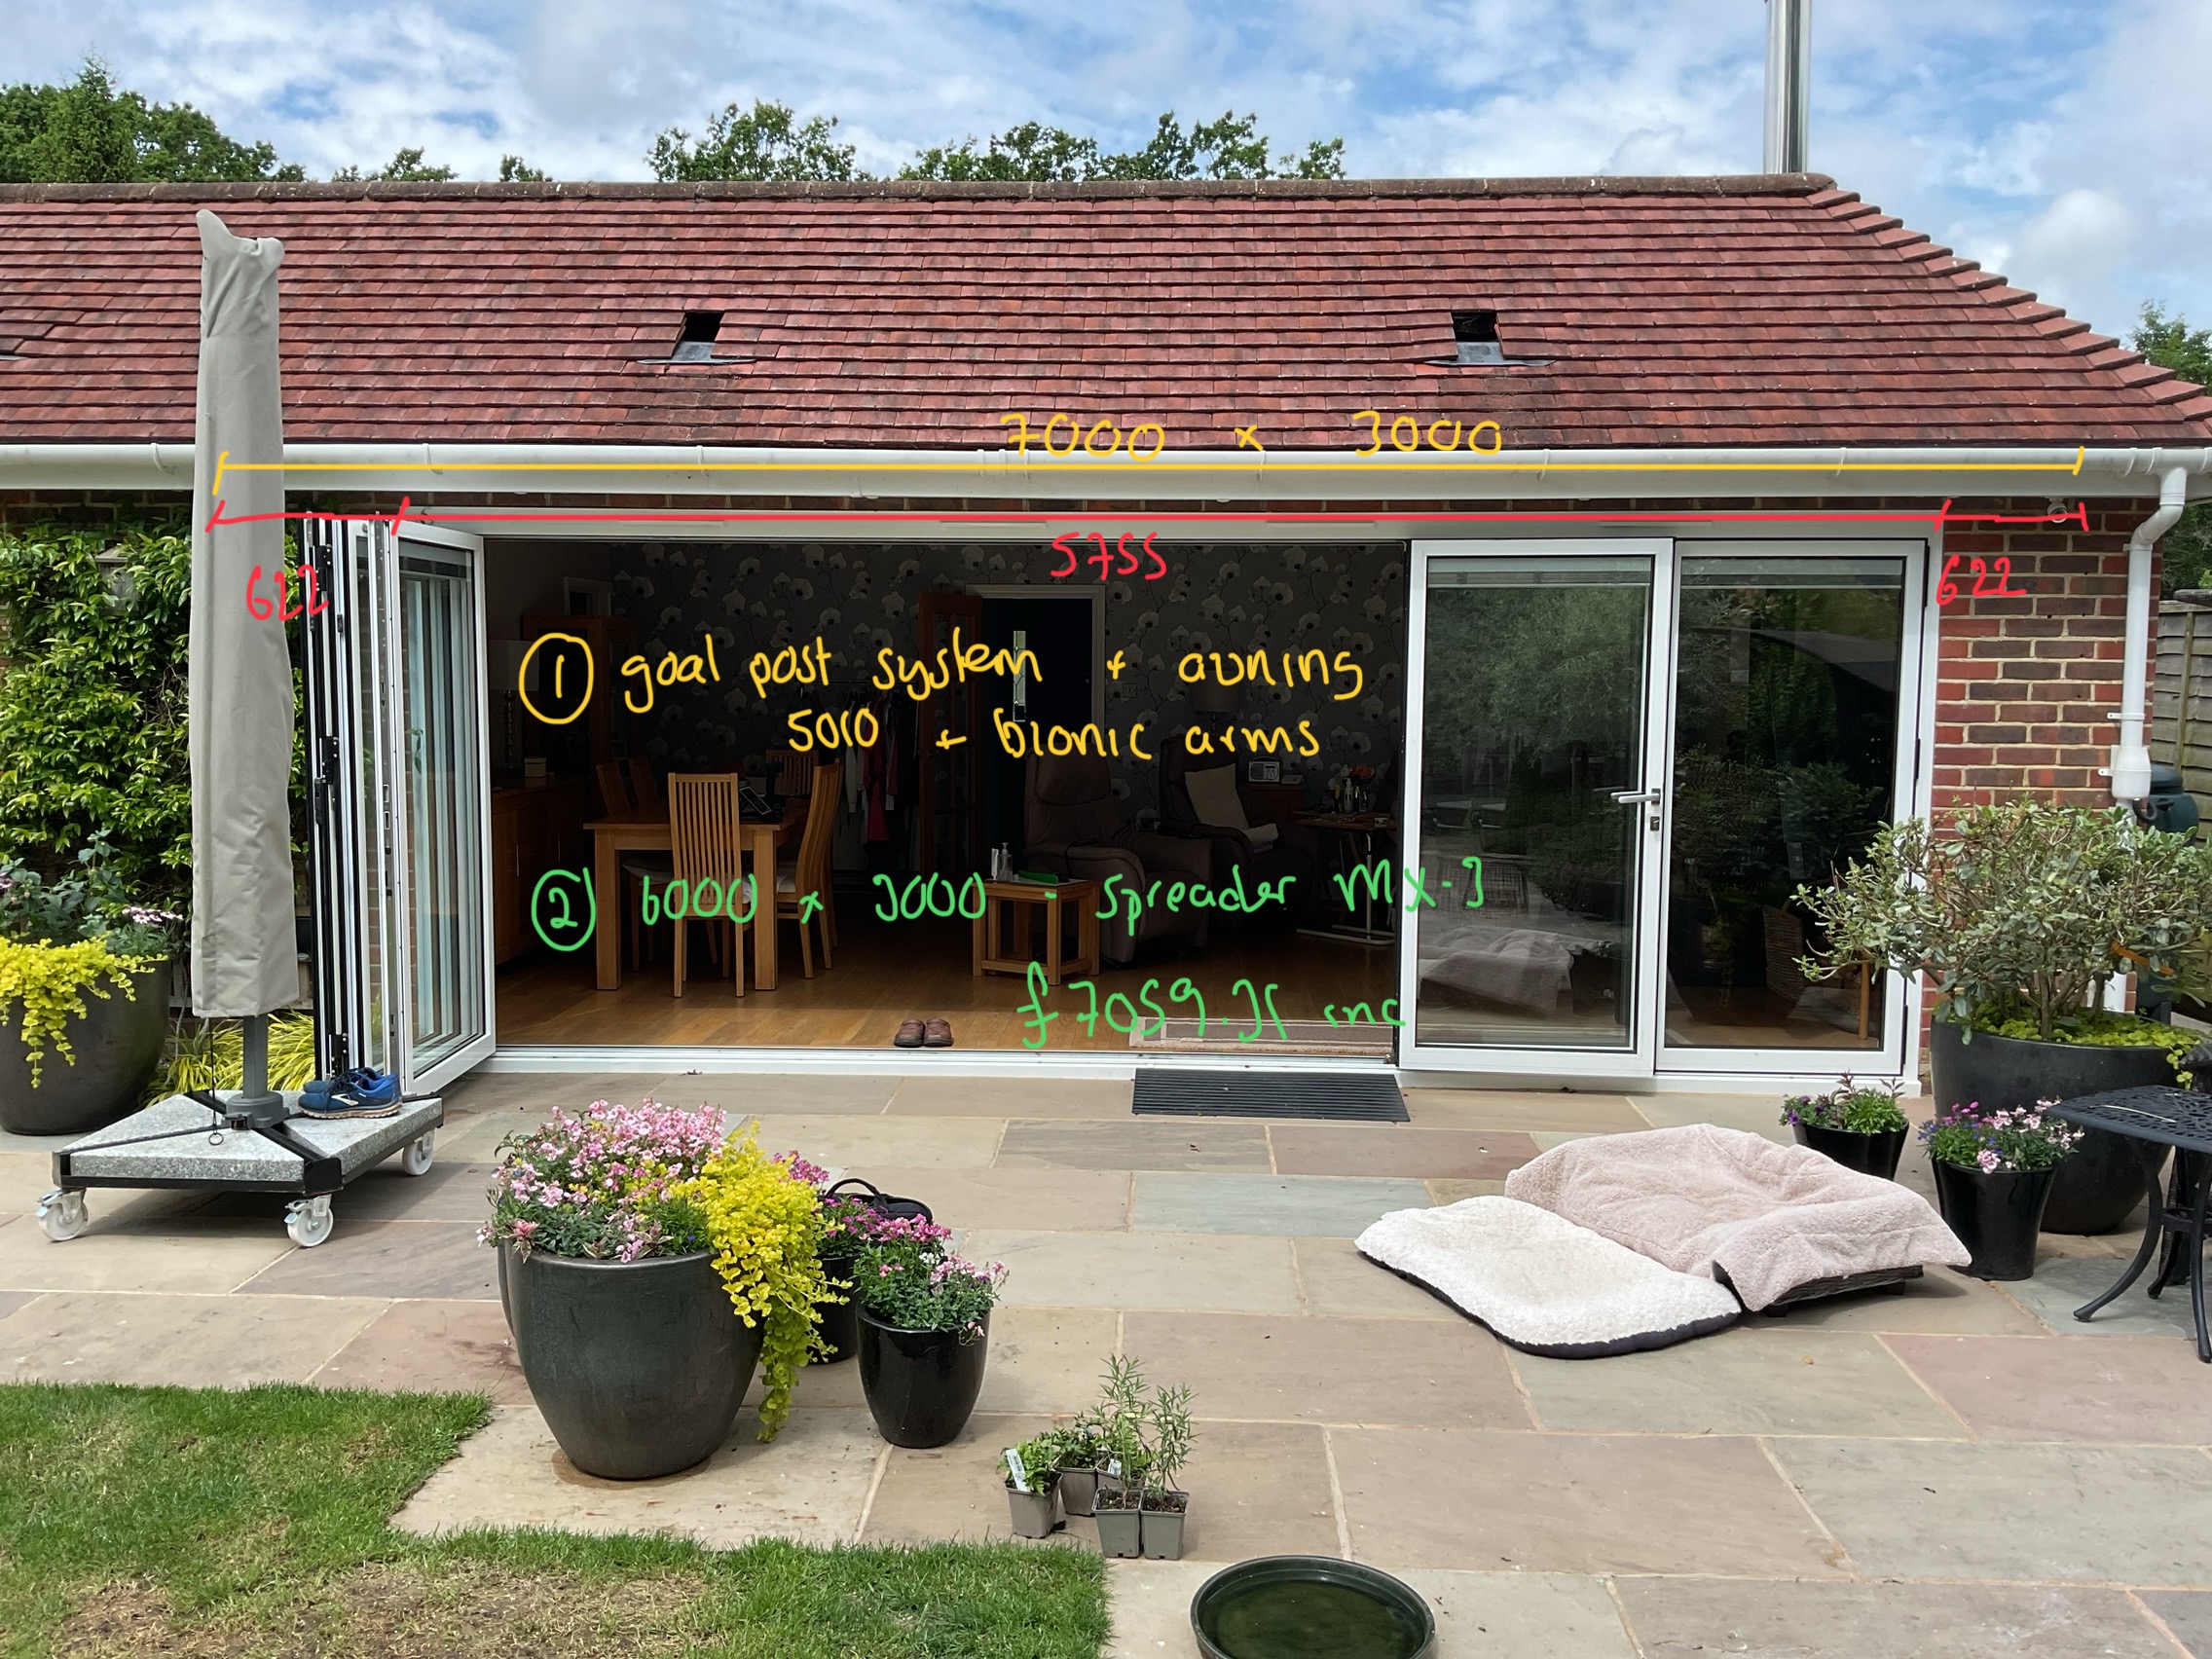 7000 x 3000
5755
622
622
① goal post system + awning
5010 + bionic arms
② 6000 x 3000 - spreader MX-3
£7059.35 inc